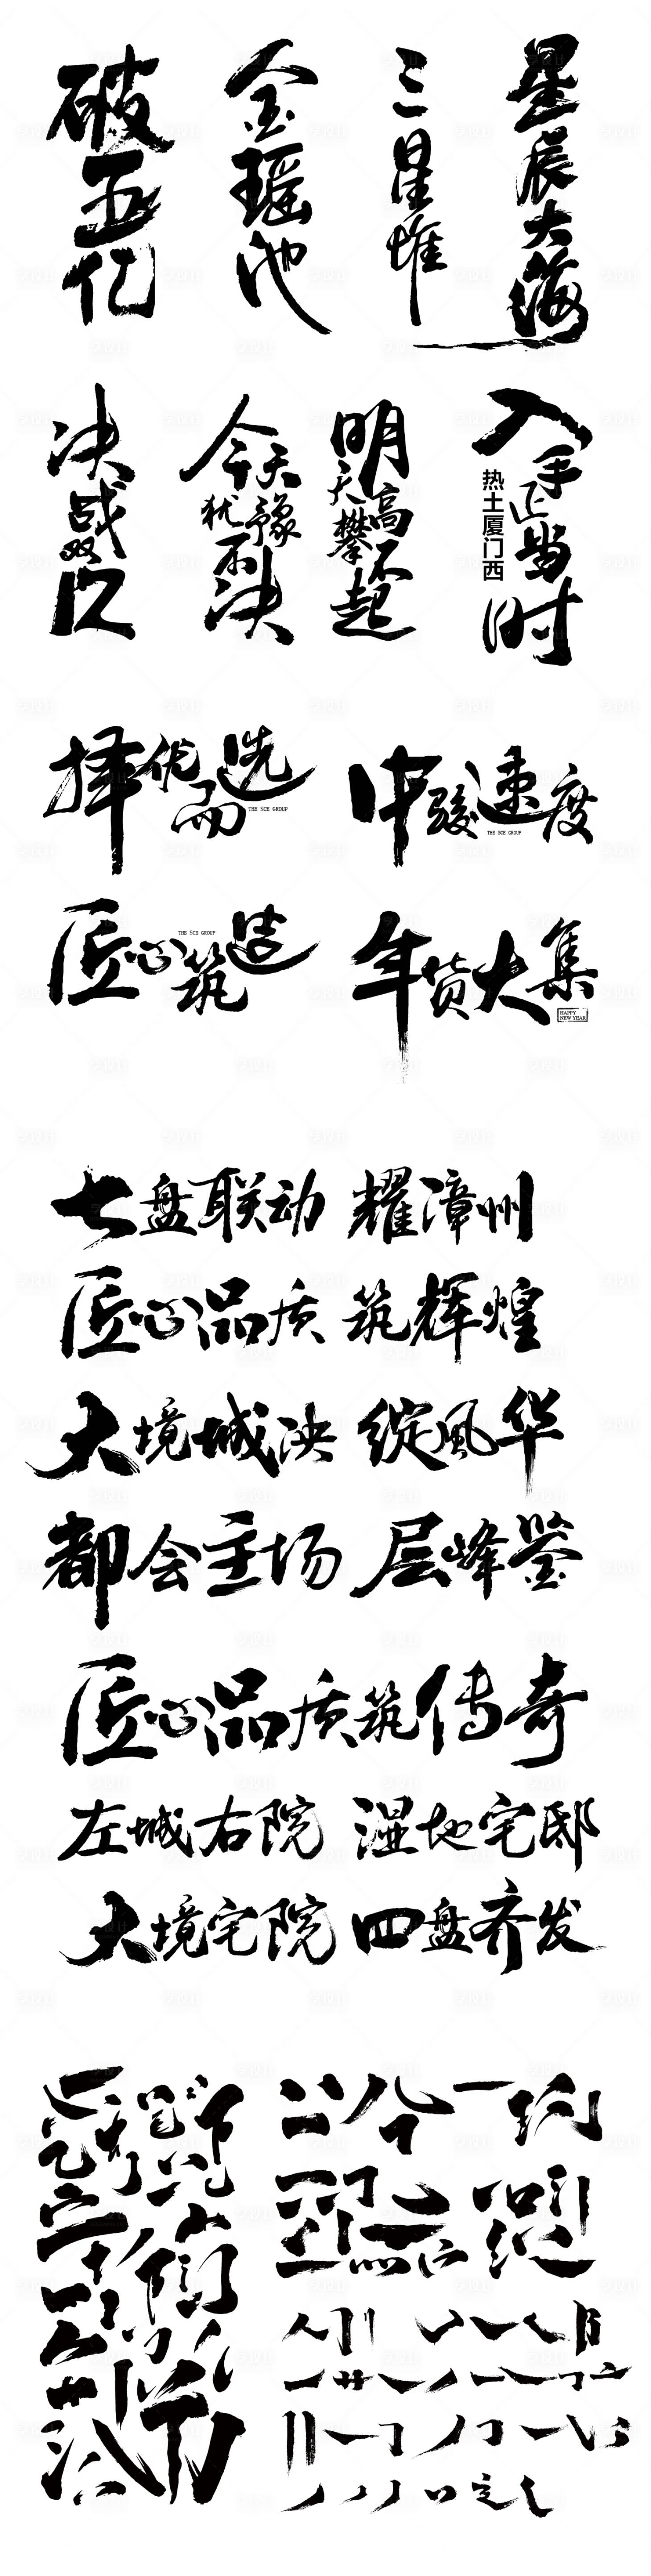 破五亿
金瑶池
三星堆
星辰大海
决战双12
今天
犹豫
不决
明天
高攀
不起
入手正当时
热土厦门西
择优而选
THE SCE GROUP
中骏速度
THE SCE GROUP
匠心筑造
THE SCE GROUP
年货大集
HAPPY
NEW YEAR
七盘联动 耀漳州
匠心品质 筑辉煌
大境城决 绽风华
都会主场 层峰鉴
匠心品质筑传奇
左城右院 湿地宅邸
大境宅院 四盘齐发